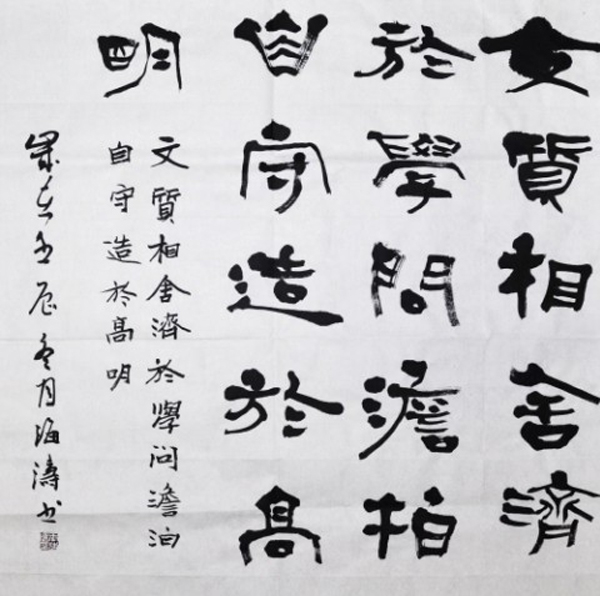 文質相舍濟
於學問澹柏
自守造於高
明
文質相舍濟於學问澹泊
自守造於高明
歲在壬辰冬月海濤书